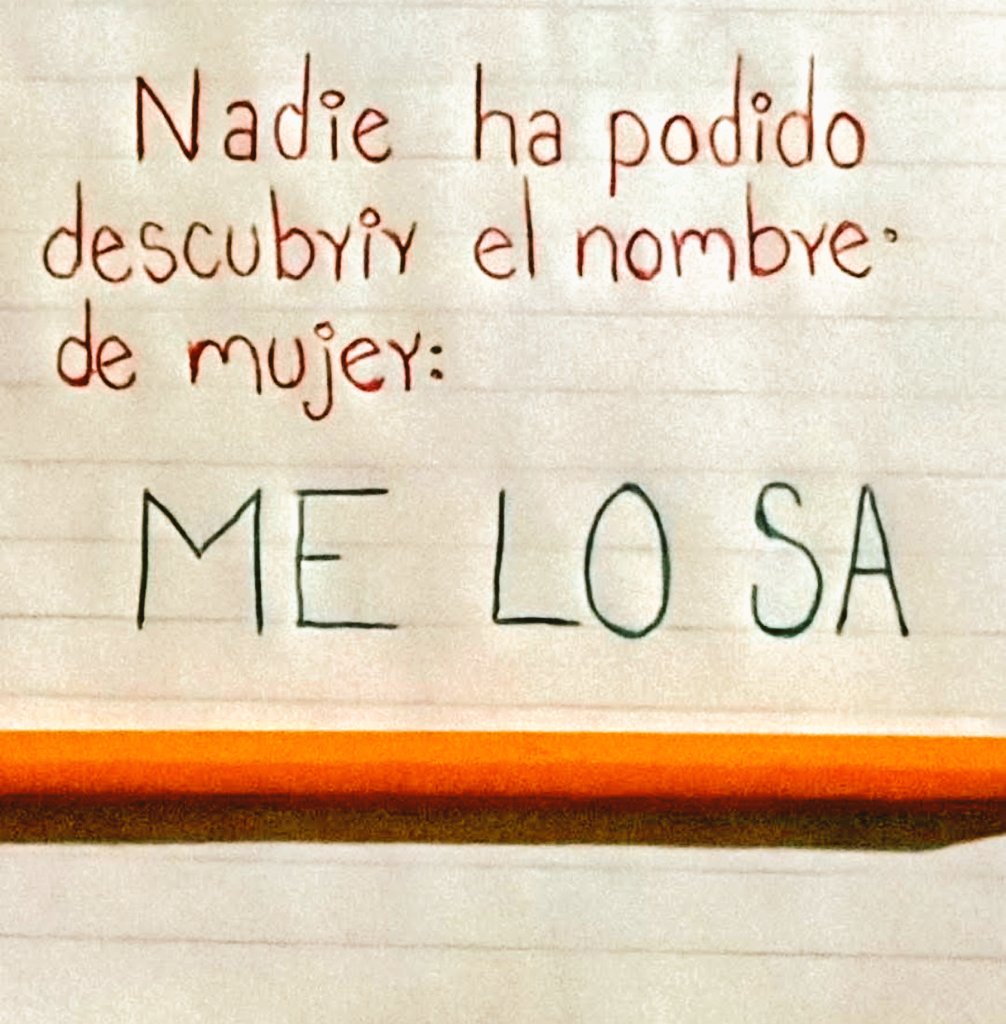 Nadie ha podido
descubrir el nombre
de mujer:
ME LO SA